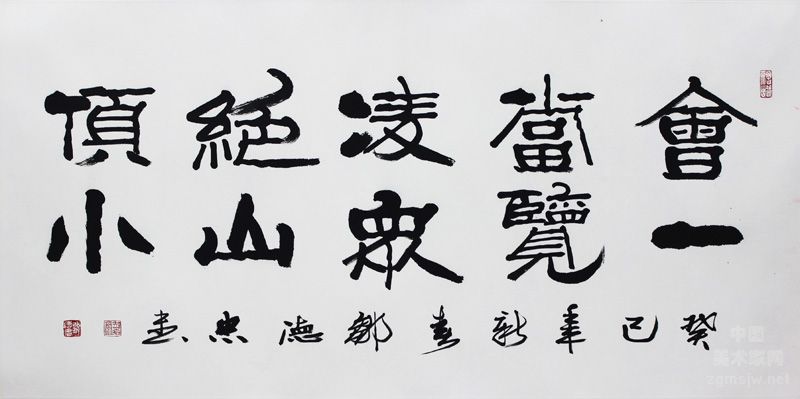 會當凌絕頂
一覽眾山小
癸巳年新春鄒德忠書
中国
美术家网
zgmsjw.net